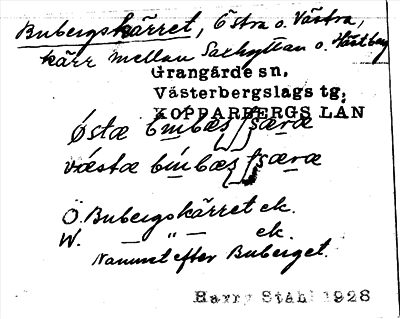 Bubergskärret, Östra o. Västra,
kärr mellan Saxhyttan o. Hästberg
Grangärde sn.
Västerbergslags tg.
KOPPARBERGS LÄN
Ö. Bubergskärret ek.
W. — " — ek.
Namnet efter Buberget.
Harry Ståhl 1928